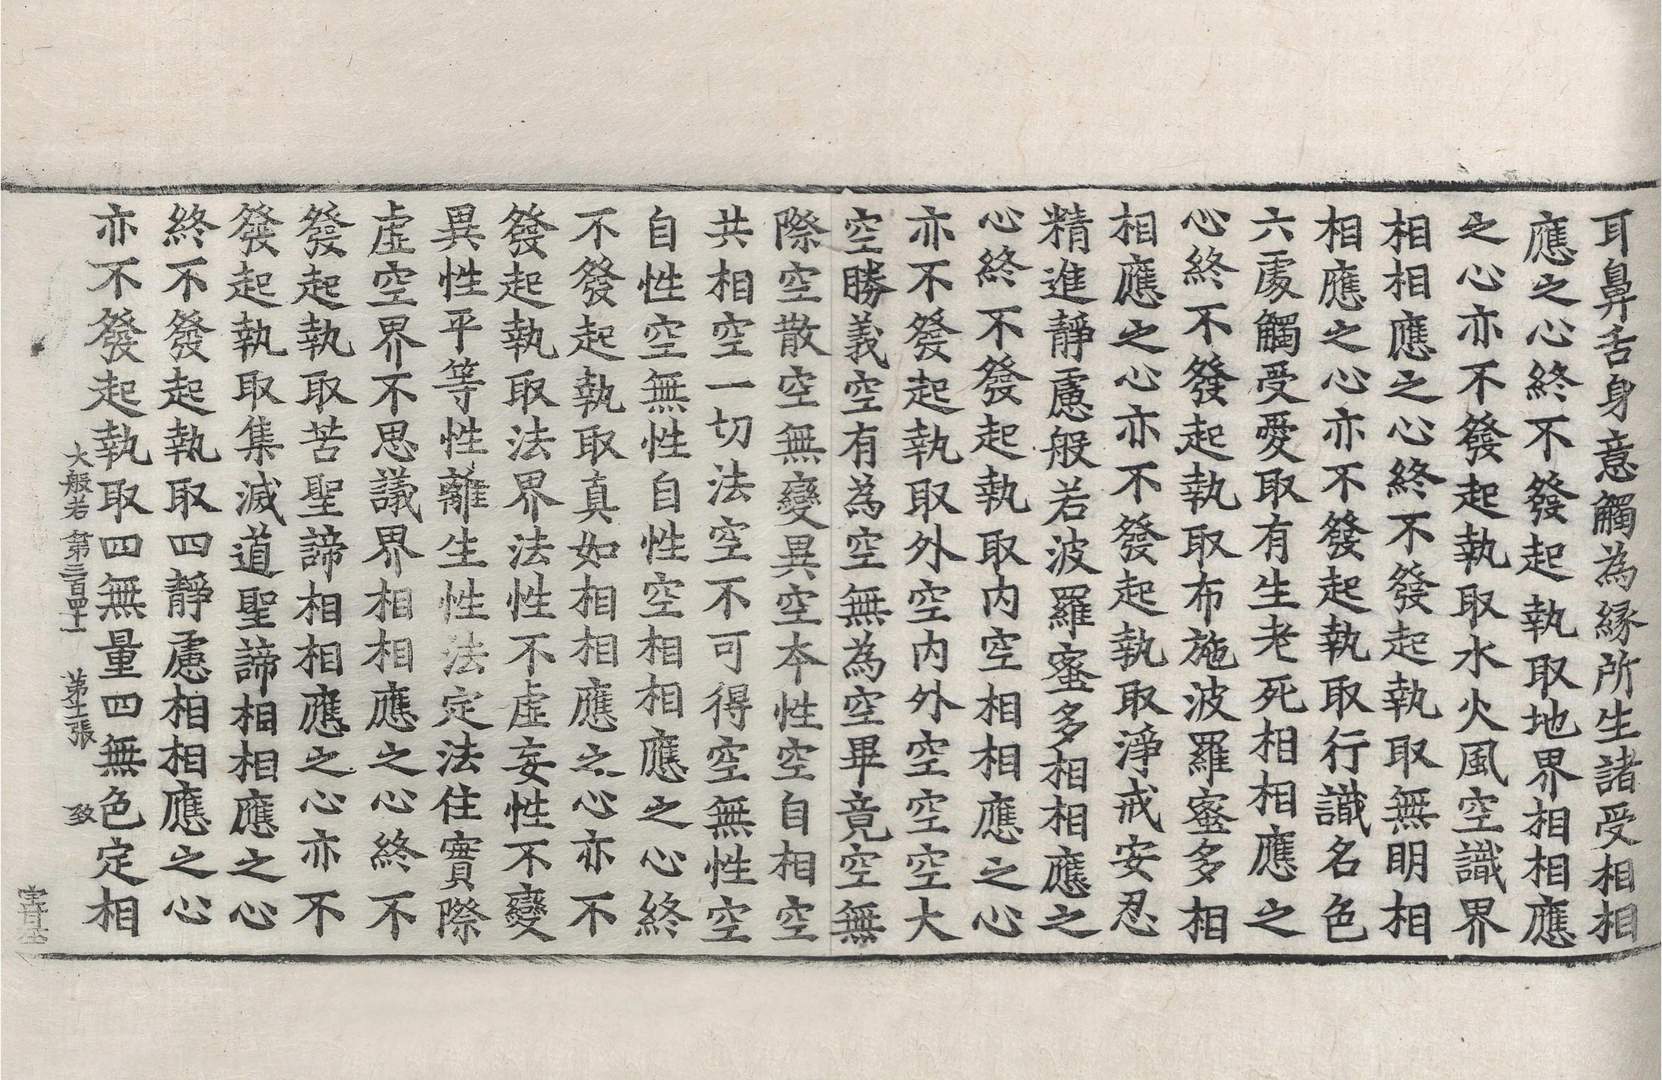 耳鼻舌身意觸為緣所生諸受相相
應之心終不發起執取地界相相應
之心亦不發起執取水火風空識界
相相應之心終不發起執取無明相
相應之心亦不發起執取行識名色
六處觸受愛取有生老死相相應之
心終不發起執取布施波羅蜜多相
相應之心亦不發起執取淨戒安忍
精進靜慮般若波羅蜜多相相應之
心終不發起執取內空相相應之心
亦不發起執取外空內外空空空大
空勝義空有為空無為空畢竟空無
際空散空無變異空本性空自相空
共相空一切法空不可得空無性空
自性空無性自性空相相應之心終
不發起執取真如相相應之心亦不
發起執取法界法性不虛妄性不變
異性平等性離生性法定法住實際
虛空界不思議界相相應之心終不
發起執取苦聖諦相相應之心亦不
發起執取集滅道聖諦相相應之心
終不發起執取四靜慮相相應之心
亦不發起執取四無量四無色定相
大般若第三百四十一 第十二張 致